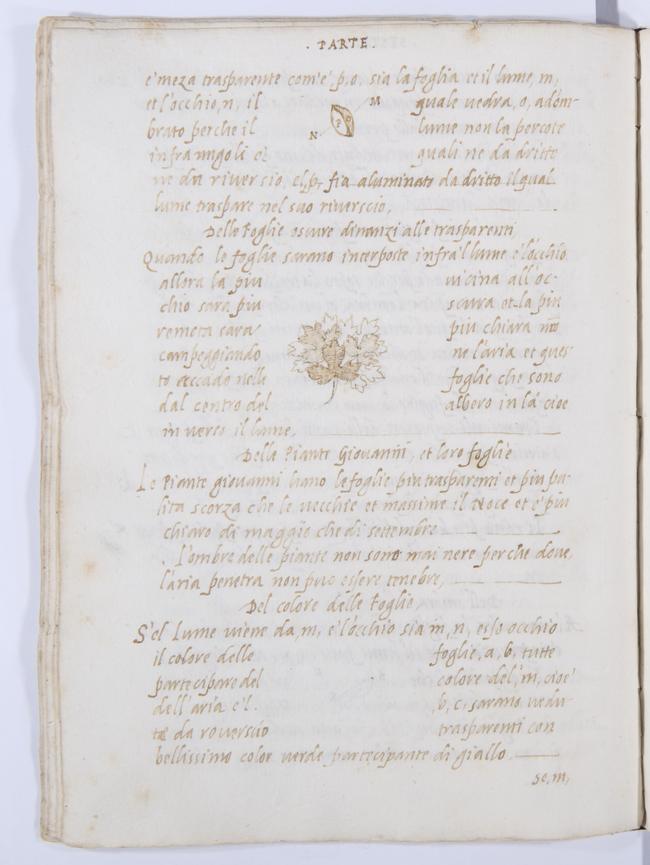 . PARTE .
e' meza trasparente com'e' p, o. sia la foglia et il lume, m,
et l'occhio, n, il quale uedra, o, adom-
brato perche il lume non la percote
M
P O
N
infra angoli quali ne da dritto
ne da riuersio, el, p, fia aluminato da dritto il qual
lume traspare nel suo riuerscio,
Delle Foglie oscure dinanzi alle trasparenti,
Quando le foglie sarano interposte infra'l lume e l'occhio
allora la piu uicina all'oc-
chio sara piu scura et la piu
remota sara piu chiara no
campeggiando ne l'aria et ques
to accade nelle foglie che sono
dal centro del albero in la cioe
in uerso il lume,
Delle Piante Giouanni, et loro foglie
Le Piante giouanni hano le foglie piu trasparenti et piu pu-
lita scorza che le uecchie et massime il Noce et e' piu
chiaro di maggio che di settembre
. L'ombre delle piante non sono mai nere perche doue,
l'aria penetra non puo essere tenebre,
Del colore delle Foglie,
S'el Lume uiene da, m, e l'occhio sia in, n, esso occhio
il colore delle foglie, a, b, tutte
partecipare del colore del, m, cioe'
dell'aria e'l. b, c, sarano uedu-
te da rouersio trasparenti con
bellissimo color uerde partecipante di giallo.
se, m,